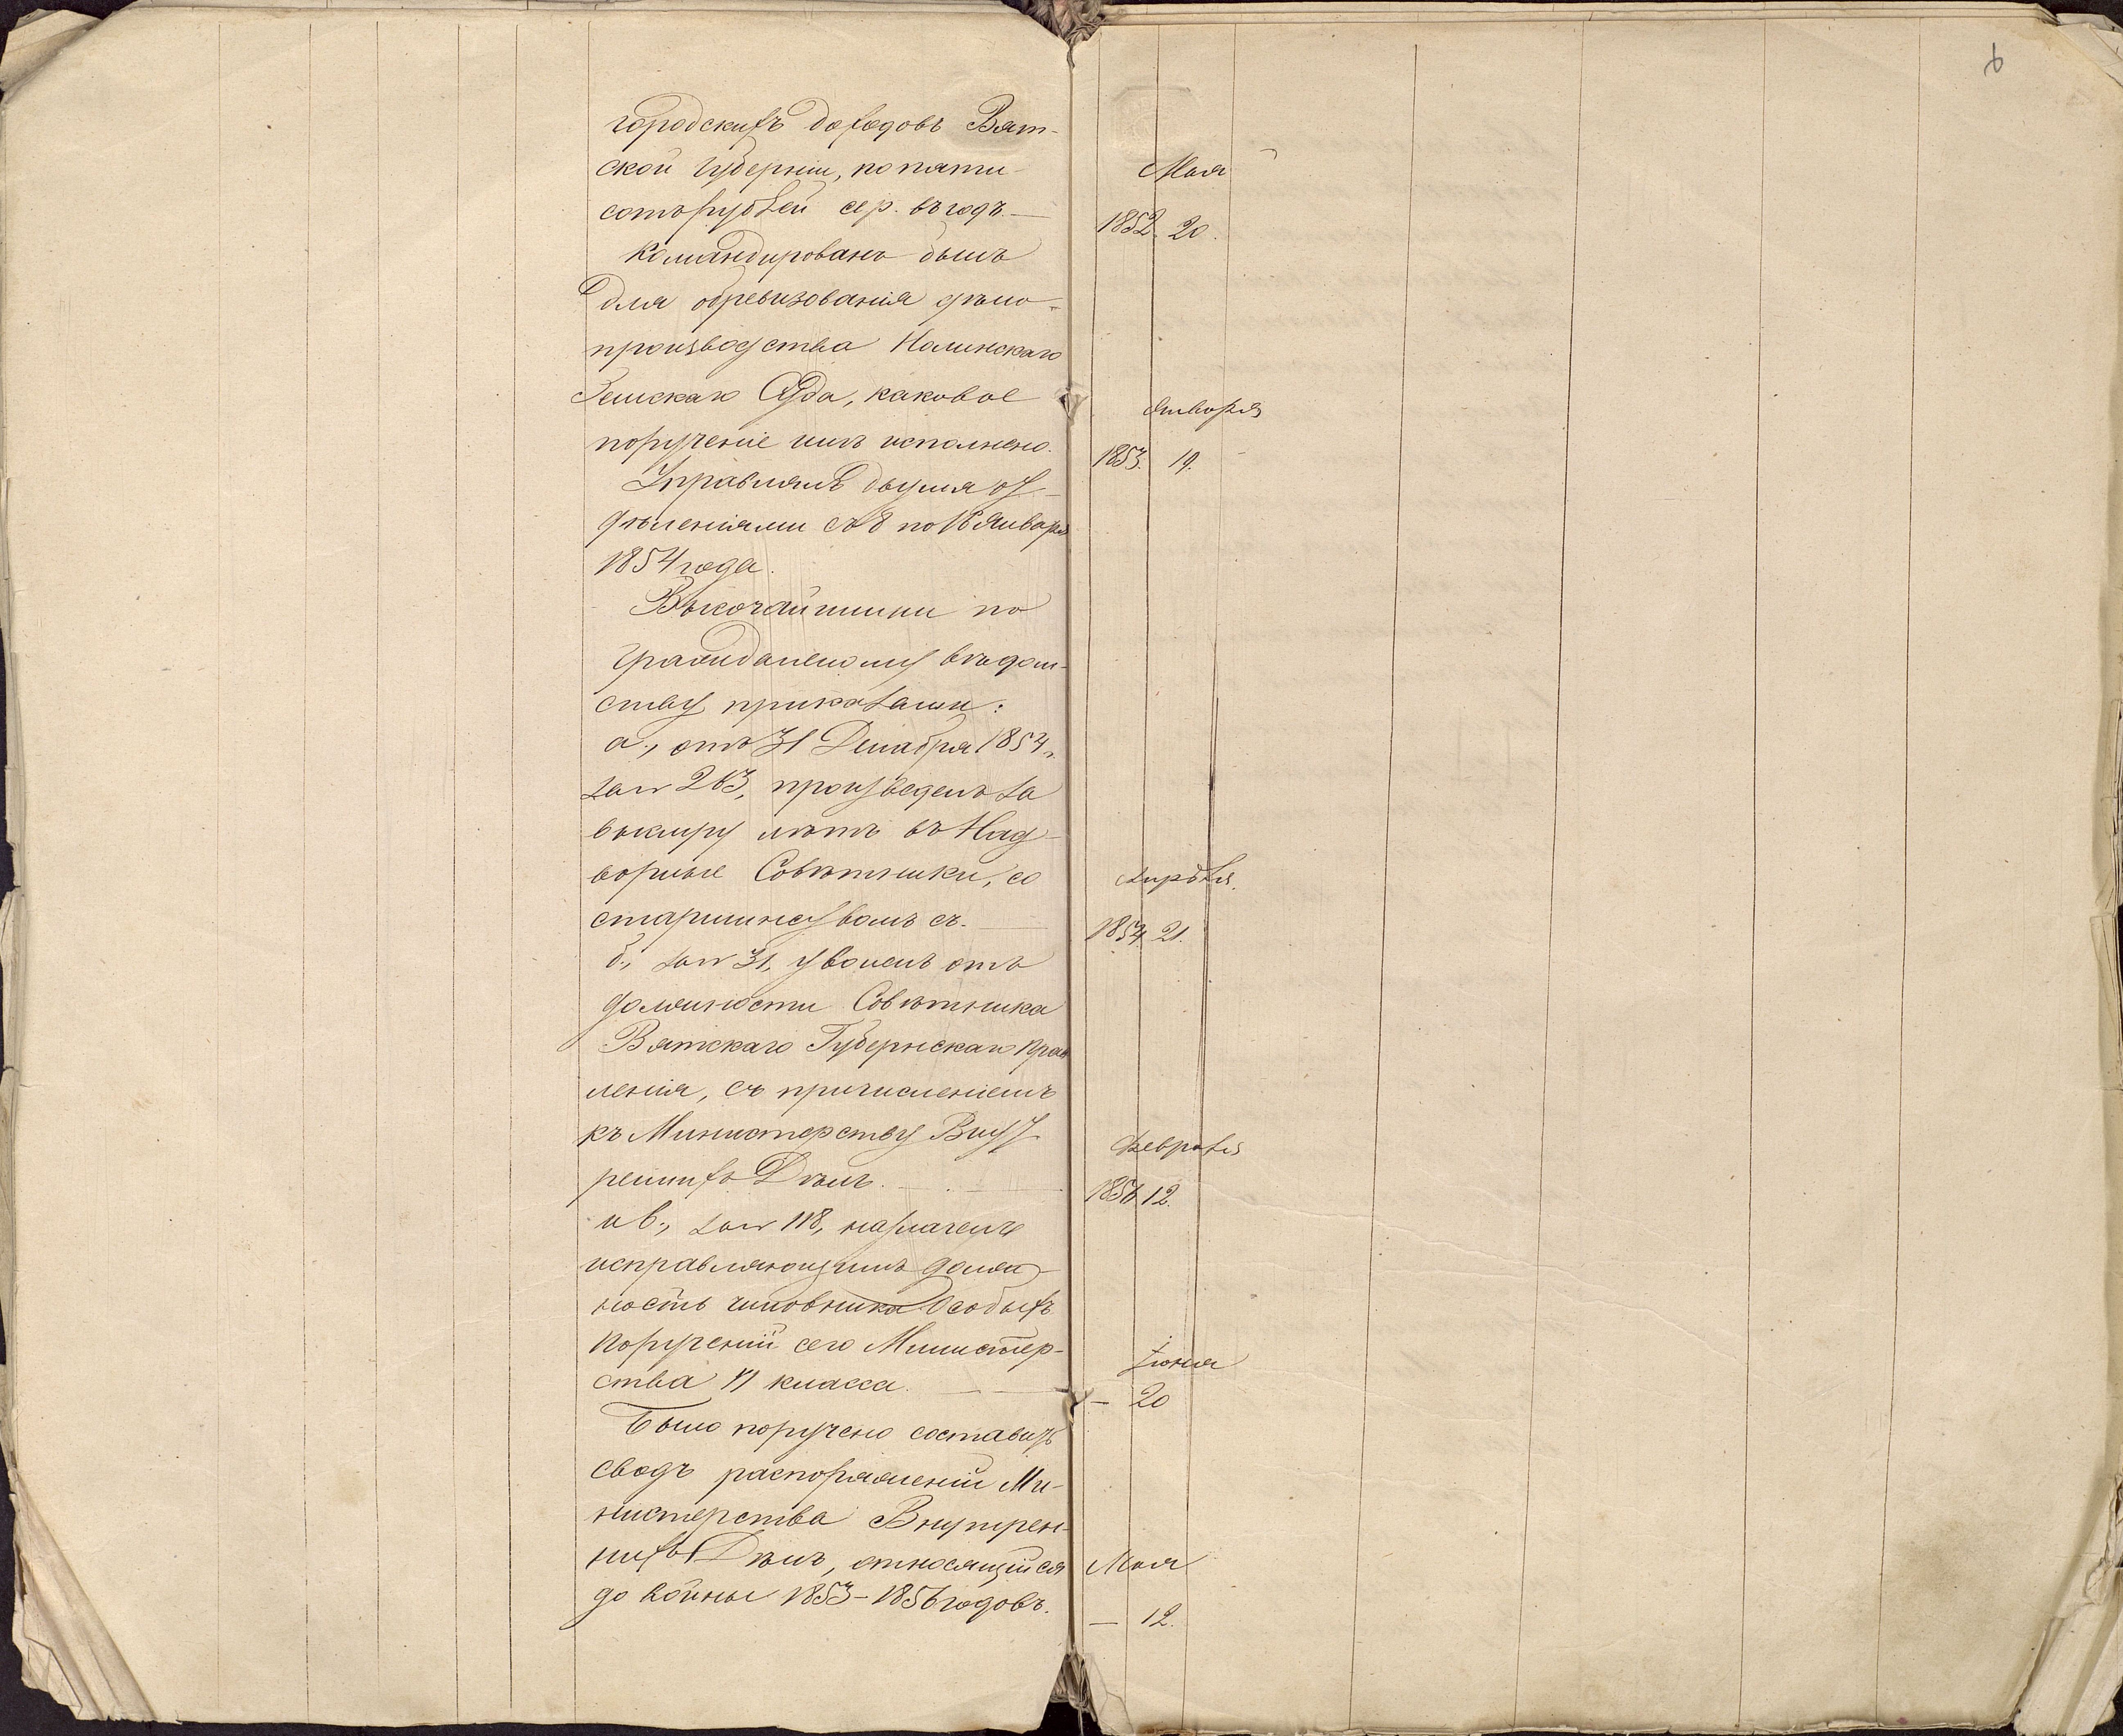 городскихъ доходовъ Вят-
ской губерніи, по пяти-
сотъ рублей сер. въ годъ. —
Мая
1852. 20.
Командированъ былъ
для обревизованія дѣло-
производства Нолинскаго
Земскаго Суда, каковое
порученіе имъ исполнено.
Января
1853. 19.
Управлялъ двумя от-
дѣленіями съ 8 по 16 Января
1854 года.
Высочайшими по
гражданскому вѣдом-
ству приказами:
а., отъ 31 Декабря 1854 г.
за № 263, произведенъ за
выслугу лѣтъ въ Над-
ворные Совѣтники, со
старшинствомъ съ. —
Апрѣля.
1854. 21.
б., за № 31, уволенъ отъ
должности Совѣтника
Вятскаго Губернскаго Прав
ленія, съ причисленіемъ
къ Министерству Внут
реннихъ Дѣлъ. —
Февраля
1856 12.
и в., за № 118, назначенъ
исправляющимъ долж-
ность чиновника Особыхъ
Порученій сего Министер-
ства VI класса. —
Іюня
— 20
Было поручено составить
сводъ распоряженій Ми-
нистерства Внутрен-
нихъ Дѣлъ, относящійся
до войны 1853-1856 годовъ.
Мая
— 12.
6